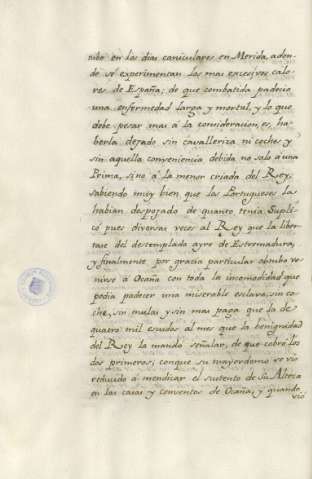 nıbo en los dias caniculares en Merida, adon-
de se experimentan los mas excesivos calo-
res de España; de que combatida padecio
una enfermedad larga y mortal, y lo que
debe pesar mas á la consideracion, es, ha-
berla dejado sin cavalleriza ni coche, y
sin aquella conveniencia debida no solo á una
Prima, sino á la menor criada del Rey,
sabiendo muy bien que los Portugueses la
habian despojado de quanto tenia. Supli-
có pues diversas veces al Rey que la liber-
tase del destemplado ayre de Estremadura,
y finalmente por gracia particular obtubo ve-
nirse á Ocaña con toda la incomodidad que
podia padecer una miserable esclava, sin co-
che, sin mulas y sin mas paga que la de
quatro mil escudos al mes que la benignidad
del Rey la mandó señalar, de que cobró los
dos primeros; conque su mayordomo se vió
reducido á mendicar el sustento de Su Alteza
en las casas y conventos de Ocaña; y quando
vió